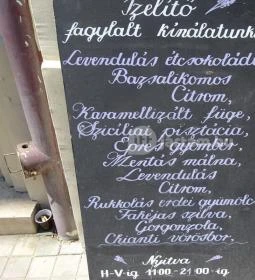 Ízelítő
fagylalt kínálatunk
Levendulás étcsokoládé
Bazsalikomos
Citrom,
Karamellizált füge,
Szicíliai pisztácia,
Epres gyömbér,
Mentás málna,
Levendulás
Citrom,
Rukkolás erdei gyümölc
Fahéjas szilva,
Gorgonzola,
Chianti vörösbor,
Nyitva
H-V-ig 11:00-21:00-ig